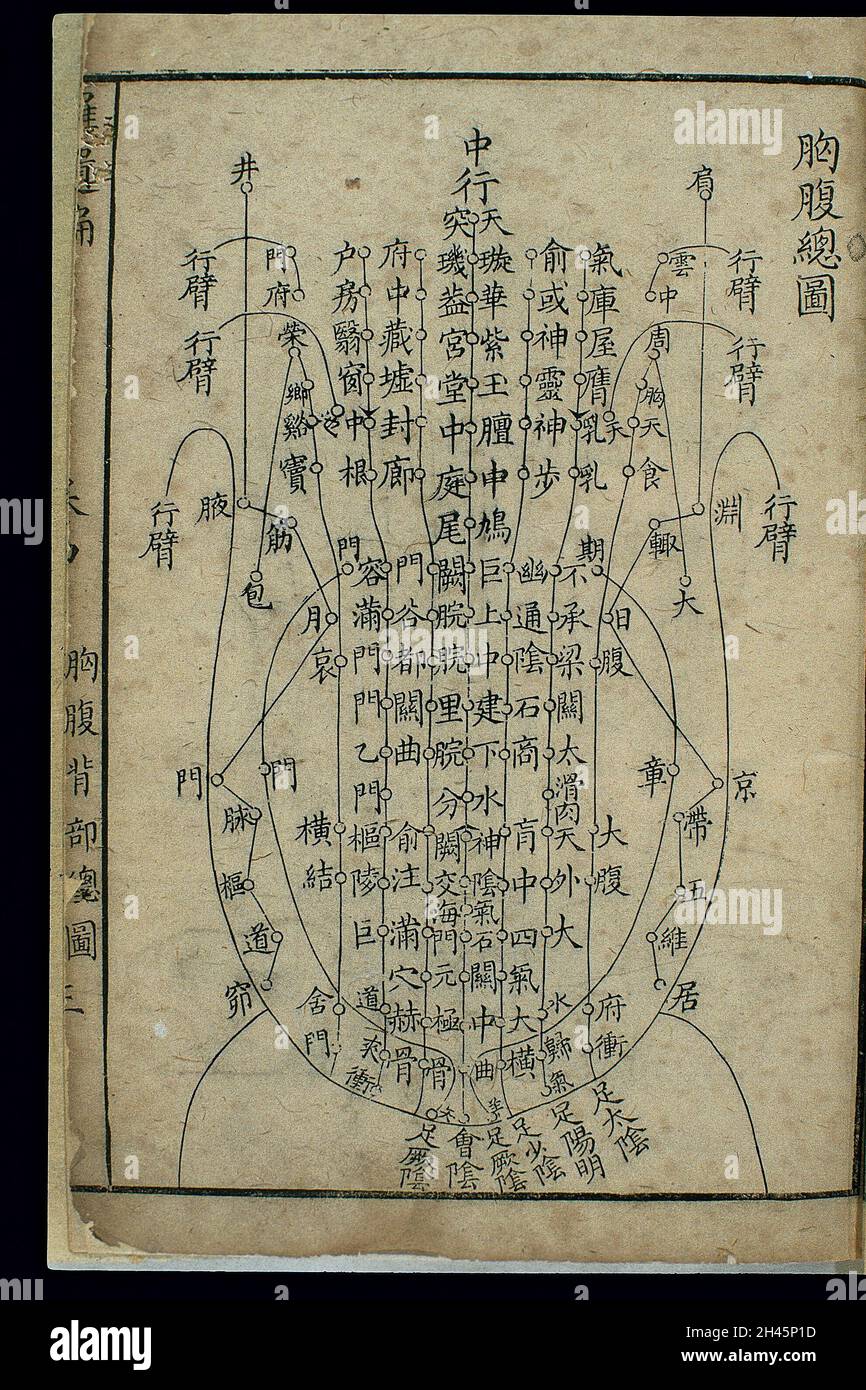 胸腹總圖
行臂
行臂
行臂
肩
雲中
淵
京
周胸天食
大
輒
帶
五
維
居
天
期
日
腹
章
大腹
府衝
足太陰
氣庫屋膺乳乳
不承梁關太滑肉天外大水歸氣
足陽明
俞或神靈神步
幽通陰石商肓中四氣大橫
足少陰
足厥陰
中行
天璇華紫玉膻中鳩
巨上中建下水神陰氣石關中曲
突璣蓋宮堂中庭尾
闕脘脘里脘分闕交海門元極骨
會陰
足厥陰
府中藏墟封廊
門谷都關曲俞注滿穴赫骨
户房翳窗中根
容滿門門乙門樞陵巨道來衝
門
月
哀
門
橫結
舍門
池
榮鄉谿竇
門府
井
腋
筋
包
門
脉
樞
道
窌
行臂
行臂
行臂
胸腹背部總圖
三
alamy
Image ID: 2H45P1D
www.alamy.com